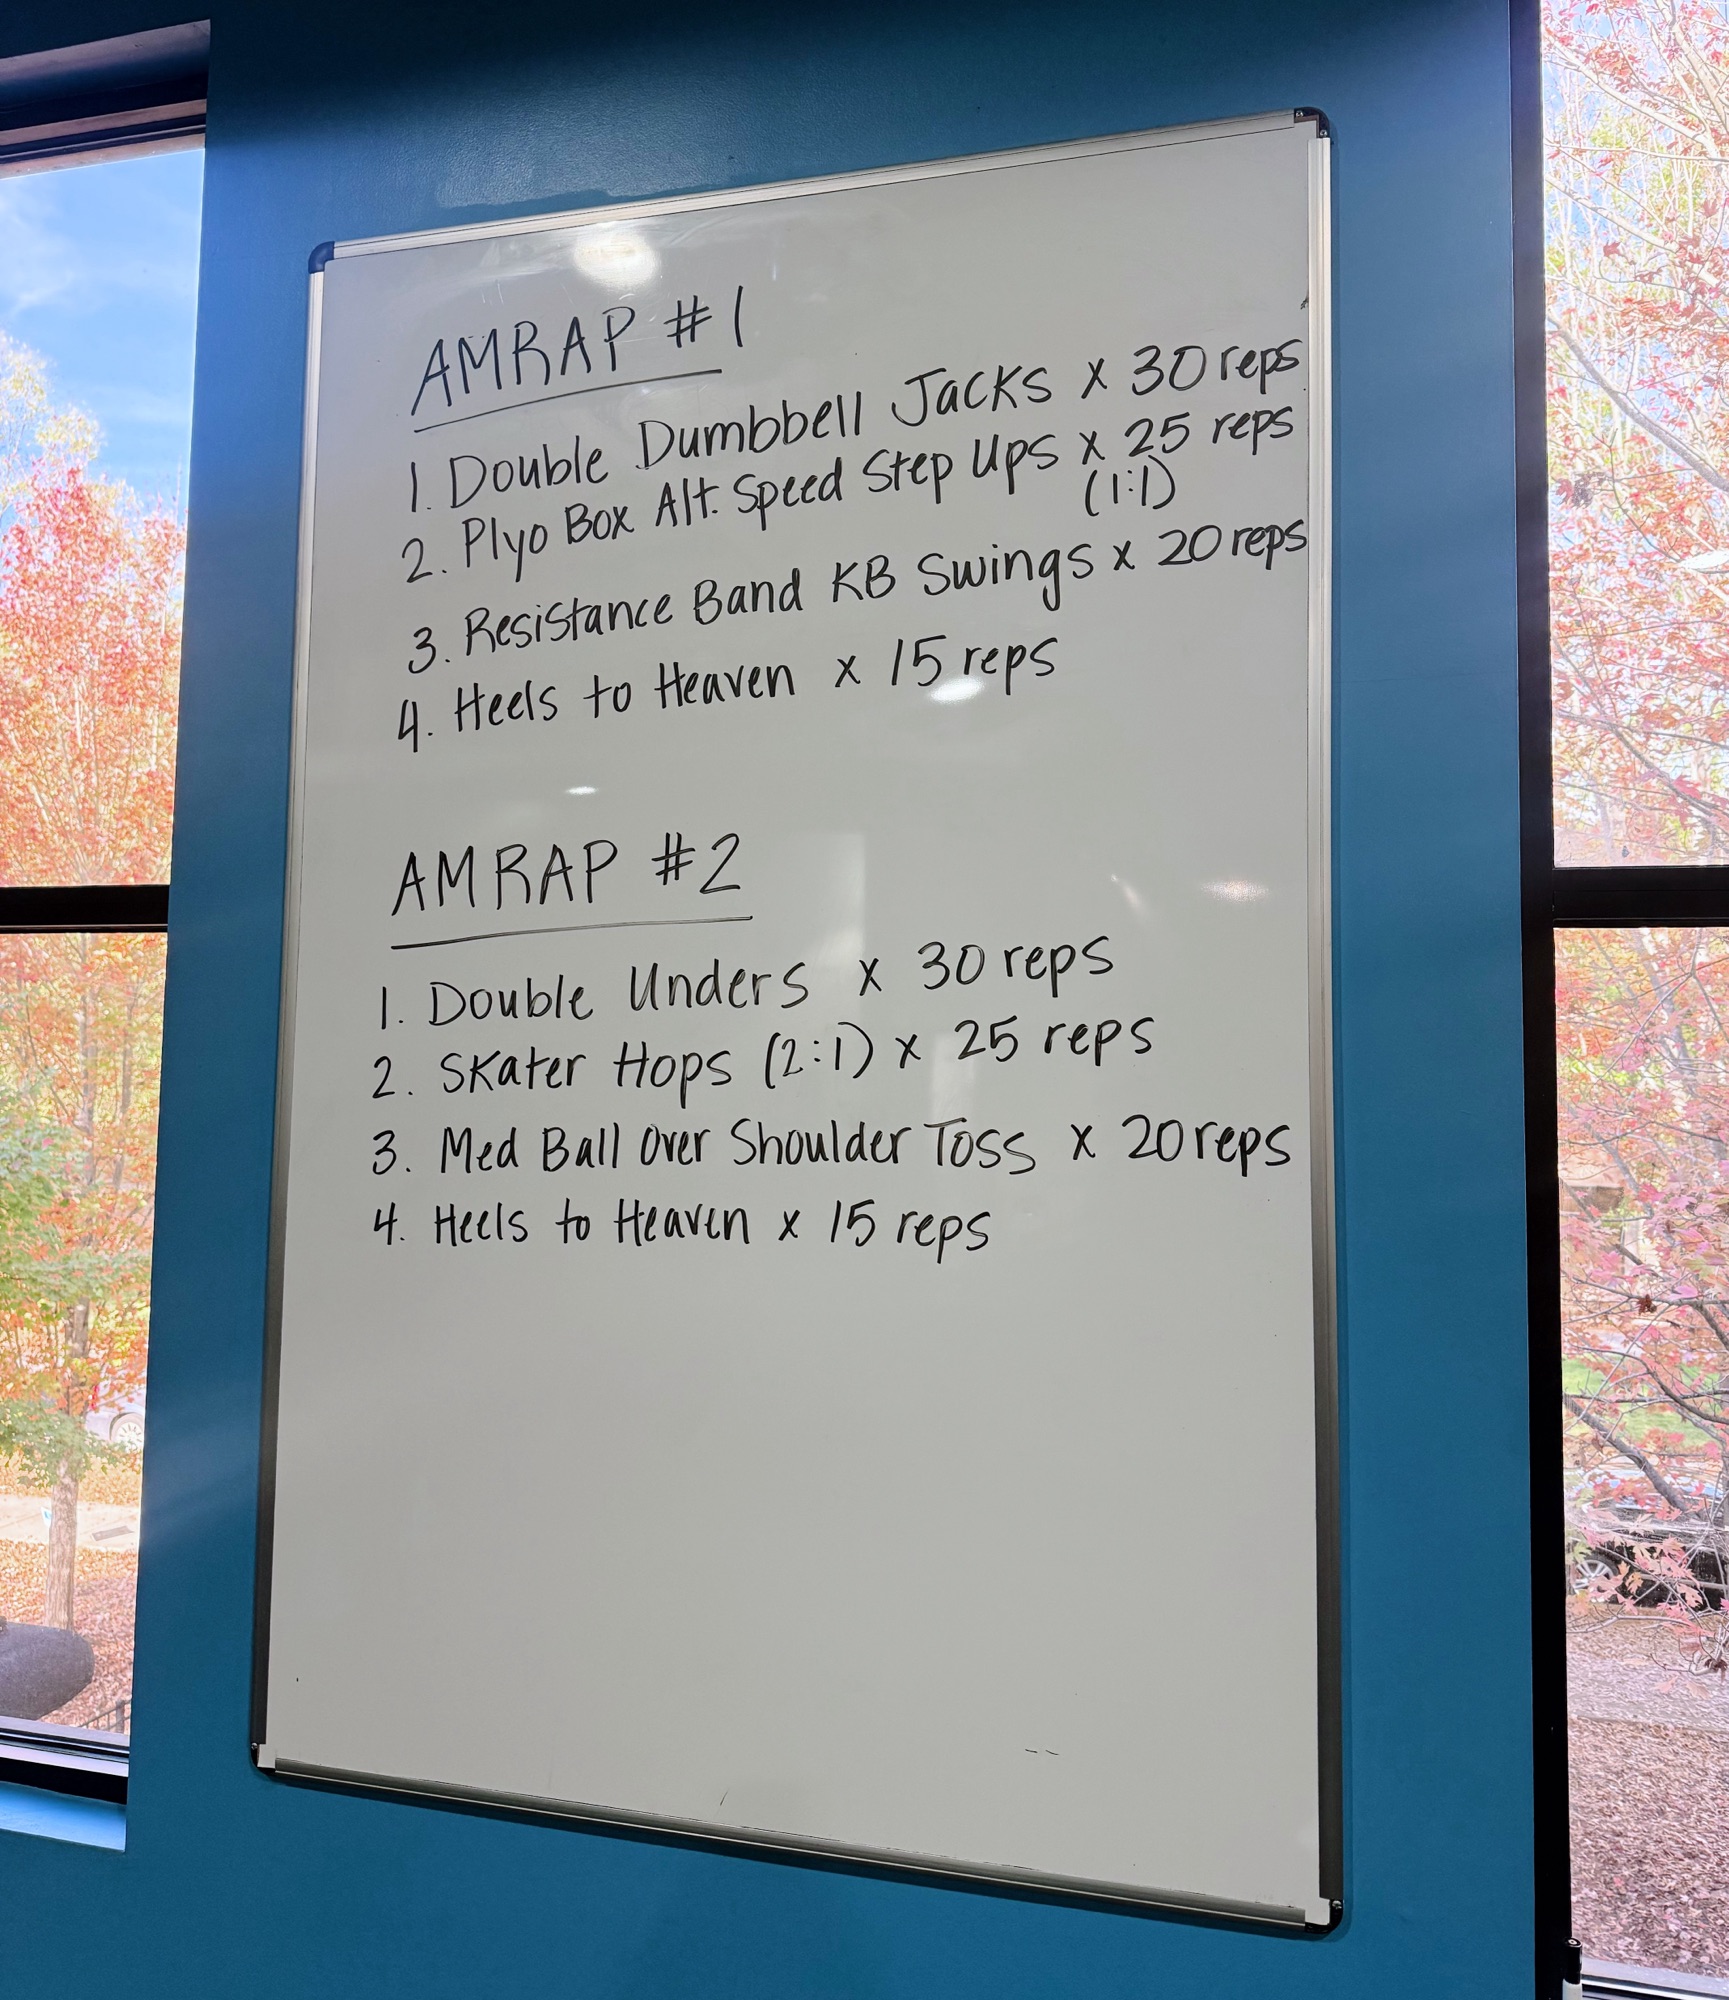 AMRAP #1
1. Double Dumbbell Jacks x 30 reps
2. Plyo Box Alt. Speed Step Ups x 25 reps
(1:1)
3. Resistance Band KB Swings x 20 reps
4. Heels to Heaven x 15 reps
AMRAP #2
1. Double Unders x 30 reps
2. Skater Hops (2:1) x 25 reps
3. Med Ball Over Shoulder Toss x 20 reps
4. Heels to Heaven x 15 reps